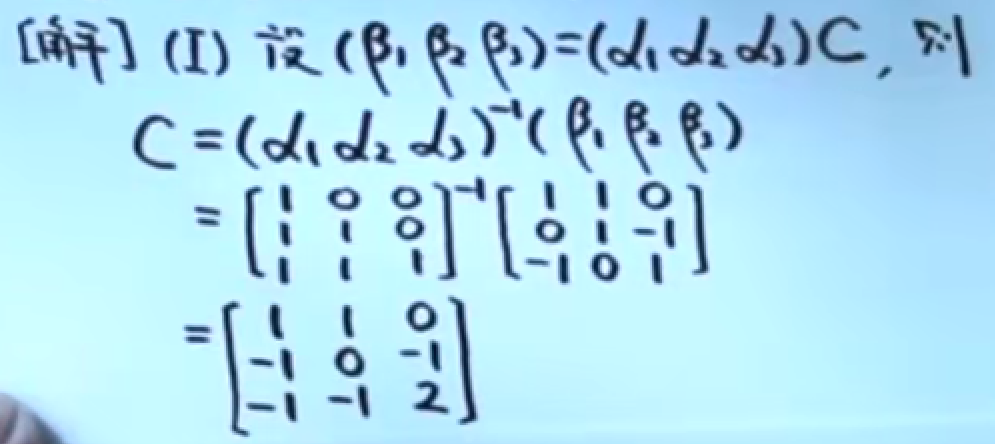 [解] (I) 设 (β₁ β₂ β₃)=(α₁ α₂ α₃)C, 则
C=(α₁ α₂ α₃)⁻¹(β₁ β₂ β₃)
= [1 0 0; 1 1 0; 1 1 1]⁻¹ [1 1 0; 0 1 -1; -1 0 1]
= [1 1 0; -1 0 -1; -1 -1 2]